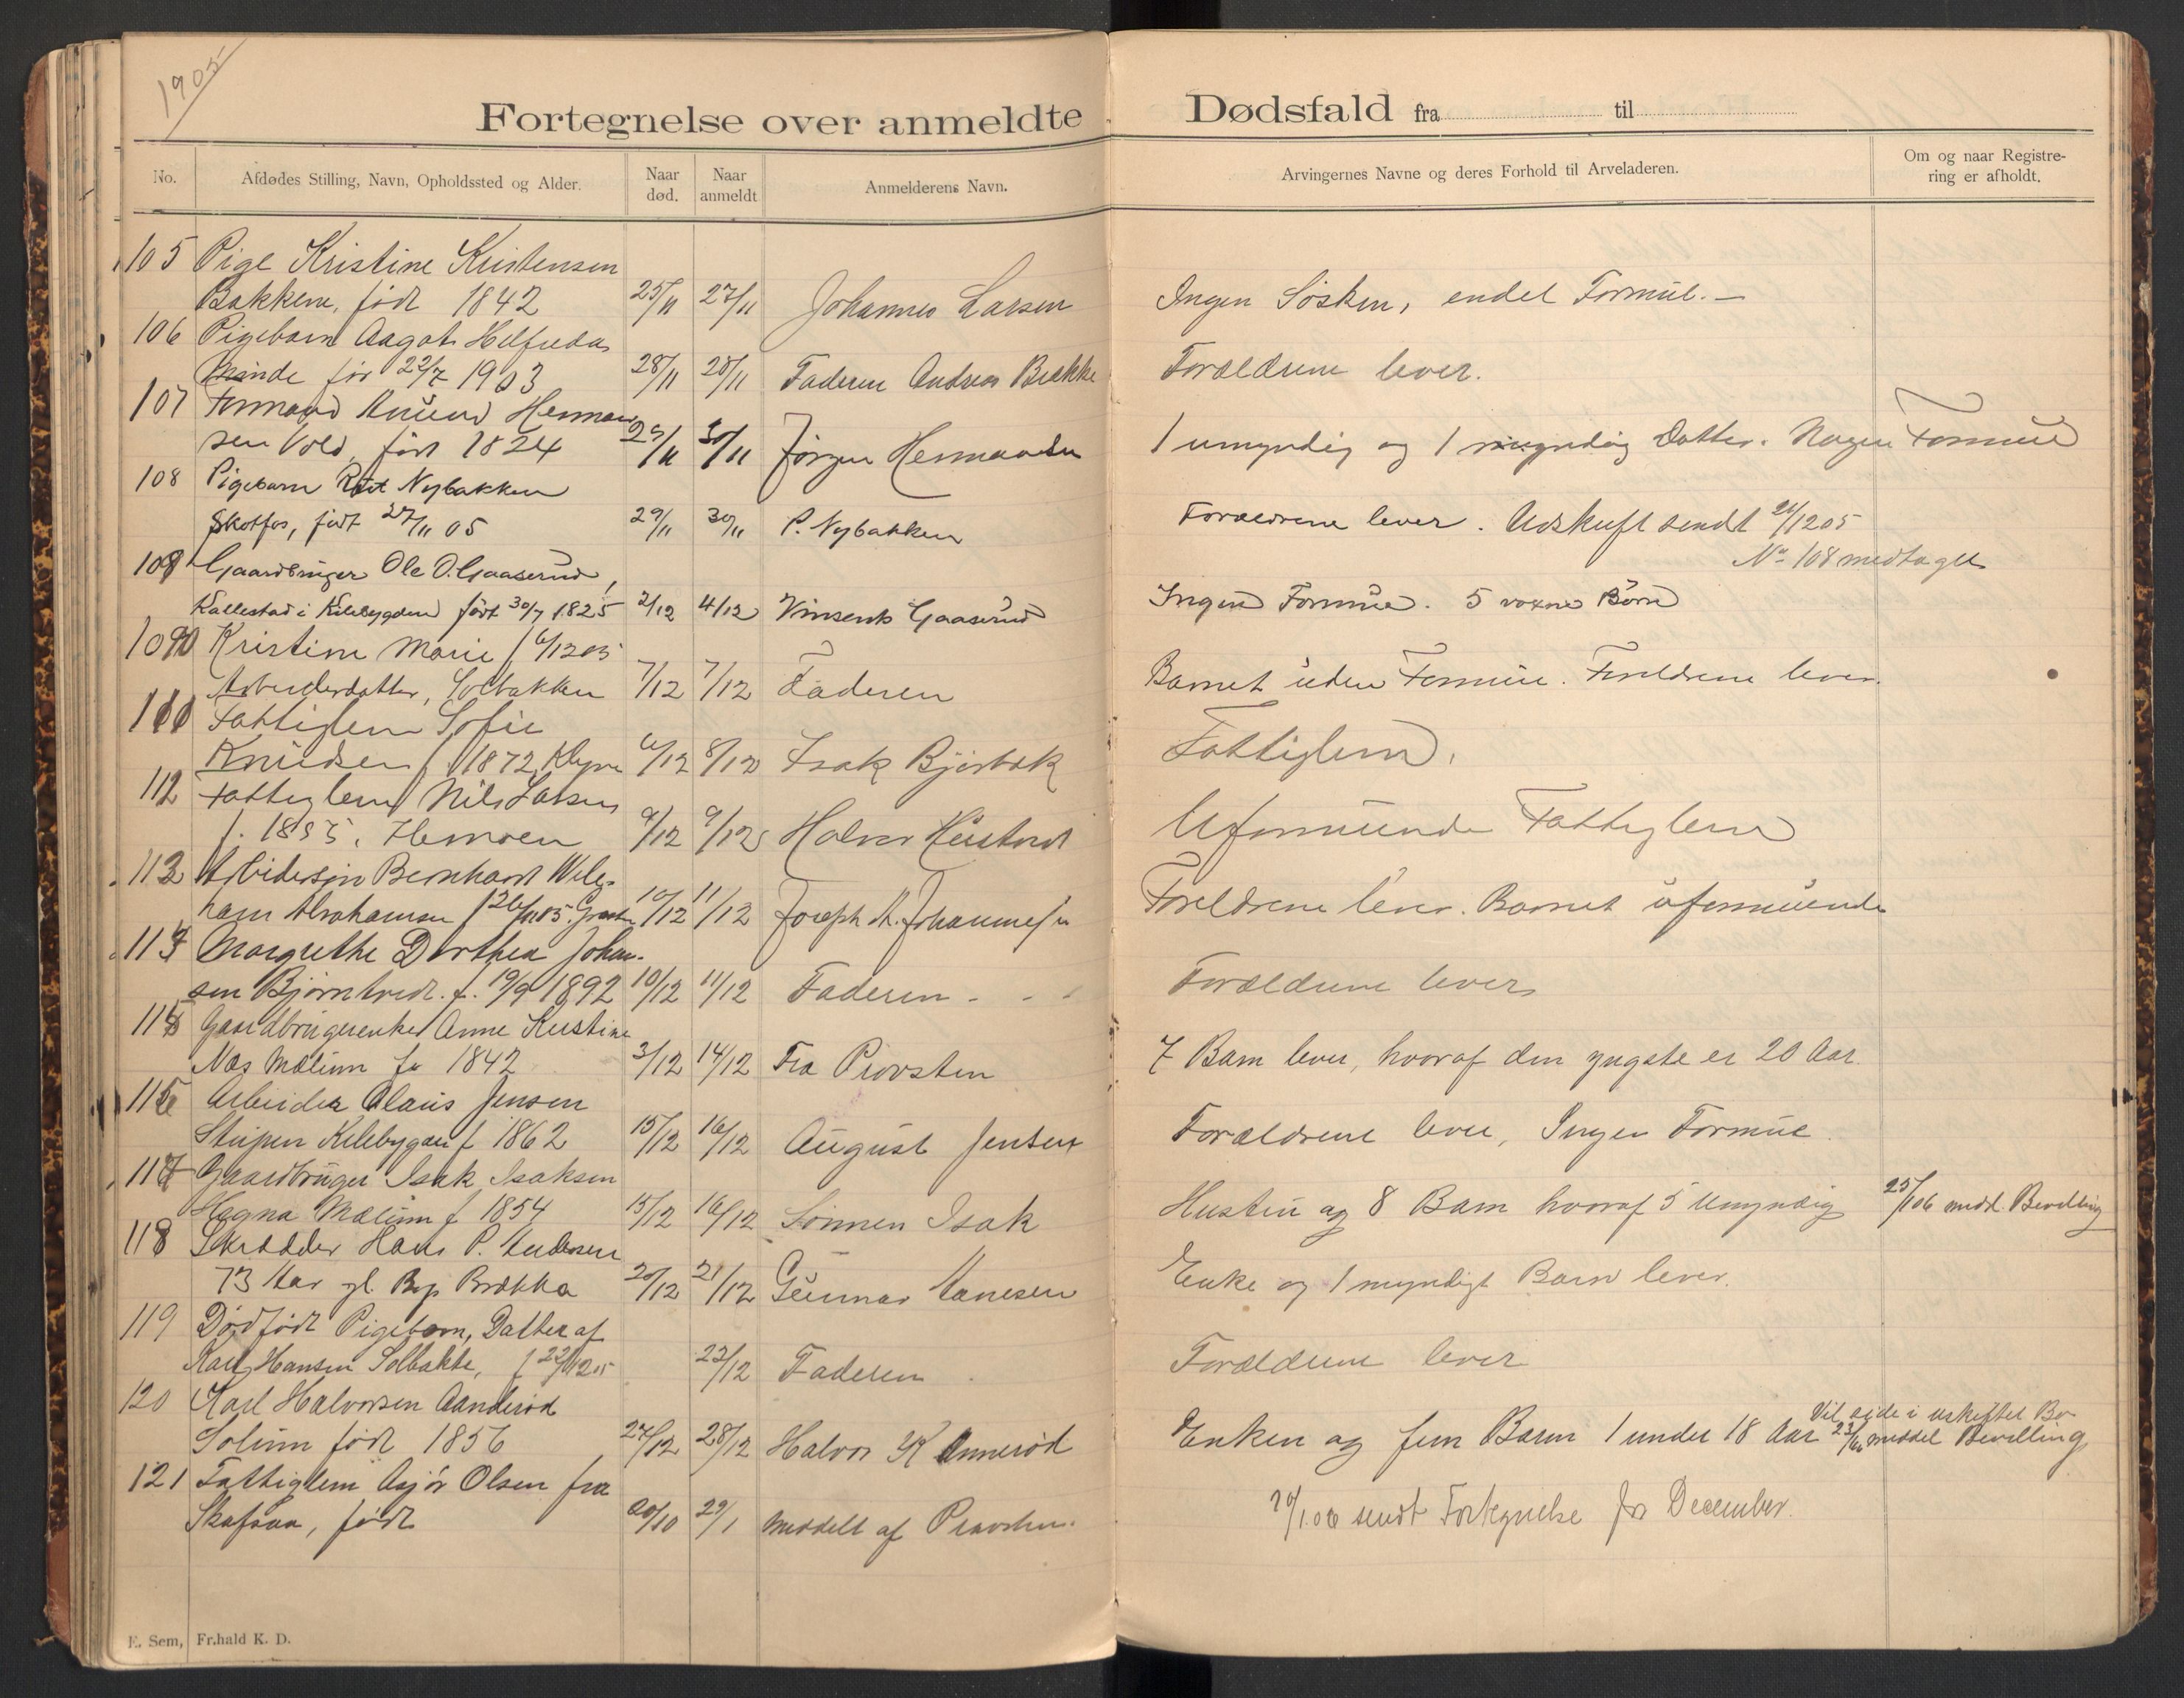 1905
Fortegnelse over anmeldte Dødsfald fra til
No. Afdødes Stilling, Navn, Opholdssted og Alder. Naar død. Naar anmeldt Anmelderens Navn. Arvingernes Navne og deres Forhold til Arveladeren. Om og naar Registrering er afholdt.
105 Pige Kristine Kristensen
Bakkene, født 1842 25/11 27/11 Johannes Larsen Ingen Søsken, endel Formue. —
106 Pigebarn Aagot Helfrida
Minde før 22/7 1903 28/11 28/11 Faderen Andreas Brække Forældrene lever.
107 Formand Knud Herman
sen Vold, født 1824 29/11 30/11 Jörgen Hermansen 1 umyndig og 1 myndig Datter. Nogen Formue
108 Pigebarn Nybakken
Skotfos, født 27/11 05 29/11 30/11 P. Nybakken Forældrene lever. Udskrift sendt 1205
No 108 medtaget
109 Gaardbruger Ole O. Gaaserud,
Kallestad i Kilebygden født 30/7 1825 2/12 4/12 Vinsents Gaaserud Ingen Formue. 5 voxne Børn
110 Kristine Marie f 6/12 05
Arbeiderdatter, Solbakken 7/12 7/12 Faderen Barnet uden Formue. Foreldrene lever.
111 Fattiglem Sofie
Knudsen f 1872, Klyve 6/12 8/12 Isak Bjørbæk Fattiglem.
112 Fattiglem Nils Larsen
f. 1835, 9/12 9/12 Halvor Uformuende Fattiglem
113 Arbidersøn Bernhard Wil-
ham Abrahamsen 10/12 11/12 Joseph A. Johannesen Foreldrene lever. Barnet uformuende
114 Margrethe Dorthea Johan-
sen Bjørntvedt. f. 19/9 1892 10/12 11/12 Faderen - - - Forældrene lever
115 Gaardbrugerenke Anne Kristine
Næs Mælum fø 1842 3/12 14/12 Fra Provsten 7 Barn lever, hvoraf den yngste er 20 Aar.
116 Arbeider Olaus Jensen
Kilebygden f 1862 15/12 16/12 August Jensen Forældrene lever, Ingen Formue.
117 Gaardbruger Isak Isaksen
Hogna Mælum f 1854 15/12 16/12 Sønnen Isak Hustru og 8 Barn hvoraf 5 Umyndig 25/1 06 medd. Bevilling
118 Skrædder Hans P. Andersen
73 Aar gl. Brække 20/12 21/12 Gunnar Hansen Enke og 1 myndigt Barn lever.
119 Dødfødt Pigebarn, Datter af
Karl Hansen Solbakke, f 22/12 05 23/12 Faderen Forældrene lever
120 Karl Halvorsen Aanderød
Solum født 1856 27/12 28/12 Halvor K Annerød Enken og fem Barn 1 under 18 Aar
Vil sidde i uskiftet Bo
meddel Bevilling
121 Fattiglem Asjør Olsen fra
Skafsaa, født 20/10 29/1 meddelt af Provsten.
20/1.06 sendt Fortegnelse for December.
E. Sem, Fr.hald K. D.